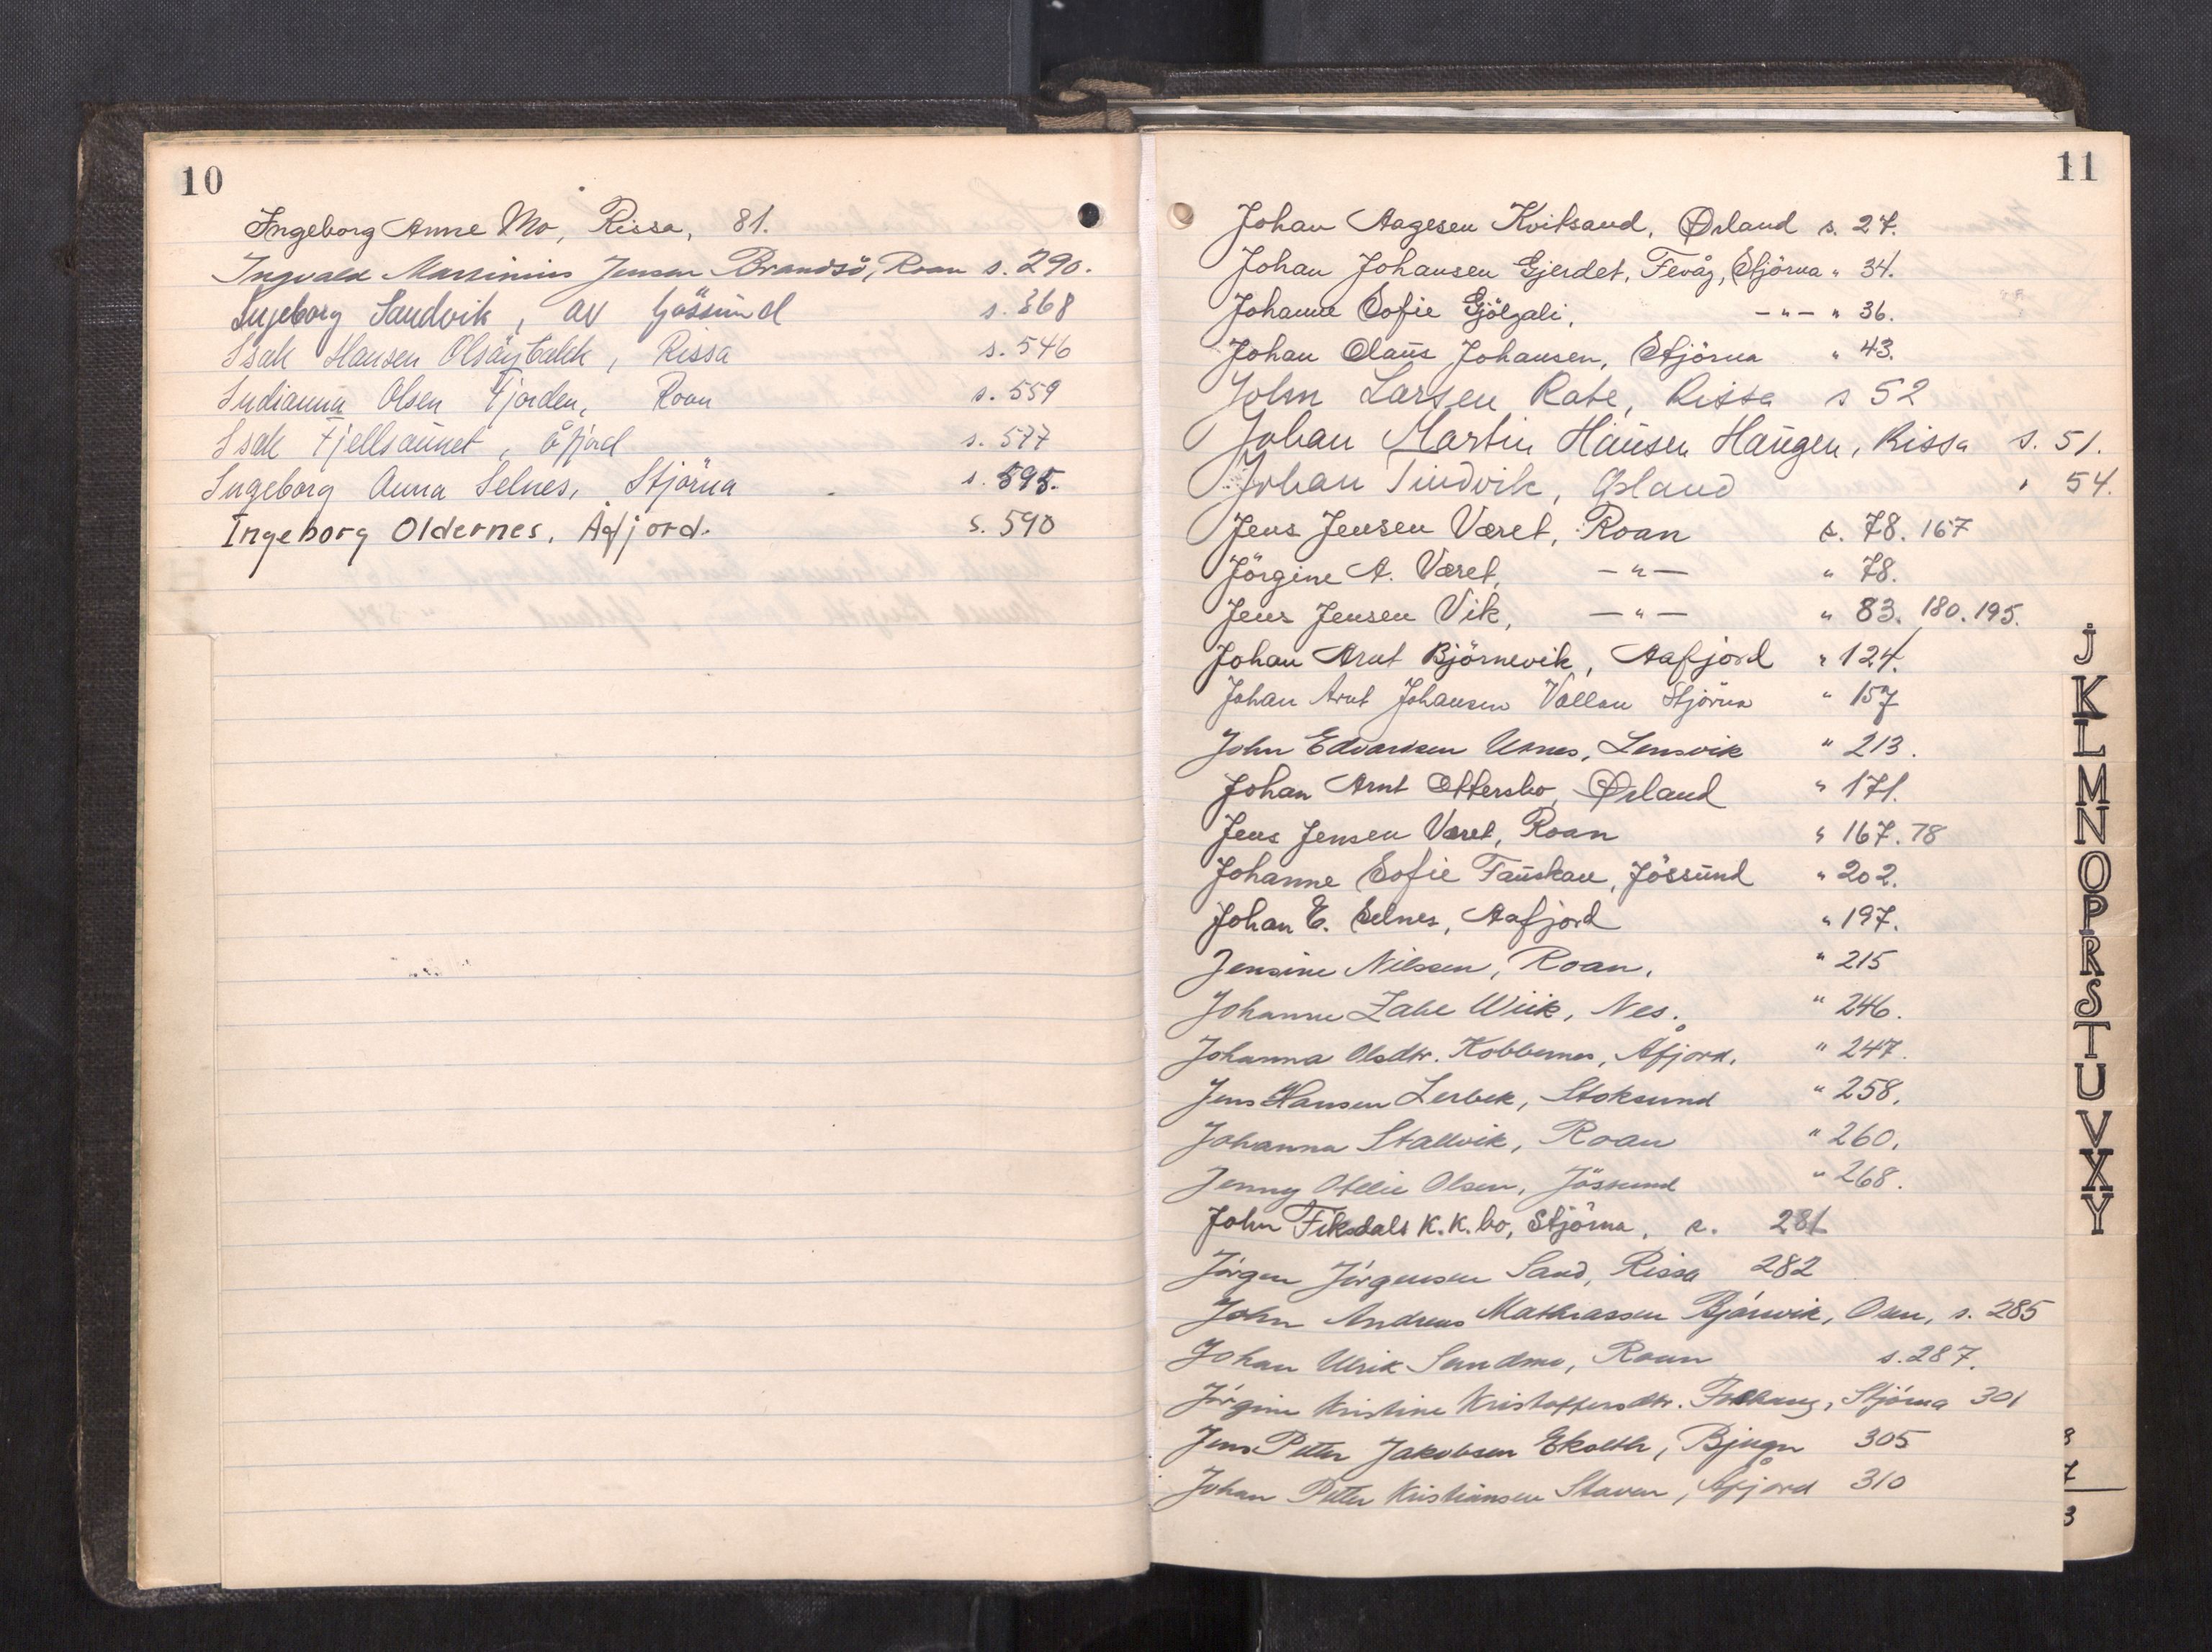 10
Ingeborg Anne Mo, Rissa, 81.
Ingvald Marsinius Jensen Brandsö, Roan s. 290.
Ingeborg Sandvik, av Jössund s. 368
Isak Hansen Olsöybakk, Rissa s. 546
Indianna Olsen Fjorden, Roan s. 559
Isak Fjellsaunet, Åfjord s. 577
Ingeborg Anna Selnes, Stjörna s. 595.
Ingeborg Oldernes, Åfjord. s. 590
11
Johan Aagesen Kvitsand, Ørland s. 27.
Johan Johansen Gjerdet, Fevåg, Stjörna " 34.
Johanne Sofie Gjölgali, -"- " 36.
Johan Olaus Johansen, Stjörna " 43.
John Larsen Rabe, Rissa s 52
Johan Martin Hansen Haugen, Rissa s. 51.
Johan Tindvik, Ørland " 54.
Jens Jensen Været, Roan s. 78. 167
Jörgine A. Været, -"- " 78.
Jens Jensen Vik, -"- " 83. 180. 195.
Johan Arnt Björnevik, Aafjord " 124.
Johan Arnt Johansen Vallan Stjörna " 157
John Edvardsen Usnes, Lensvik " 213.
Johan Arnt Ottersbo, Ørland " 171.
Jens Jensen Været, Roan " 167. 78
Johanne Sofie Fauskau, Jössund " 202.
Johan E. Selnes, Aafjord " 197.
Jensine Nilssen, Roan. " 215
Johanne Wiik, Nes. " 246.
Johanna Olsdtr. Kobbernes, Åfjord. " 247.
Jens Hansen Lerbek, Stoksund " 258.
Johanna Stallvik, Roan " 260.
Jenny Otelie Olsen, Jössund " 268.
John Fiksdals K.K. bo, Stjörna, s. 281
Jörgen Jörgensen Sand, Rissa 282
John Andreas Mathiassen Bjørnvik, Osen, s. 285
Johan Ulrik Sundmo, Roan s. 287.
Jörgine Kristine Kristoffersdtr. Stjörna 301
Jens Petter Jakobsen Ekseth, Bjugn 305
Johan Petter Kristiansen Staven, Åfjord 310
J
K
L
M
N
O
P
R
S
T
U
V
X
Y
8
7
3